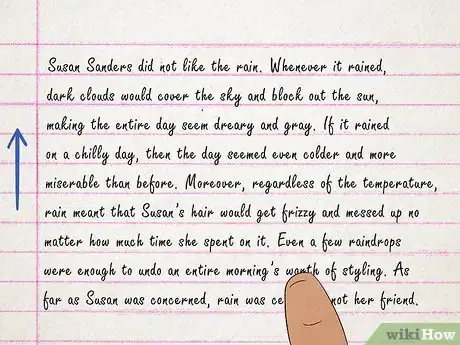 Susan Sanders did not like the rain. Whenever it rained,
dark clouds would cover the sky and block out the sun,
making the entire day seem dreary and gray. If it rained
on a chilly day, then the day seemed even colder and more
miserable than before. Moreover, regardless of the temperature,
rain meant that Susan's hair would get frizzy and messed up no
matter how much time she spent on it. Even a few raindrops
were enough to undo an entire morning's worth of styling. As
far as Susan was concerned, rain was not her friend.
wikiHow